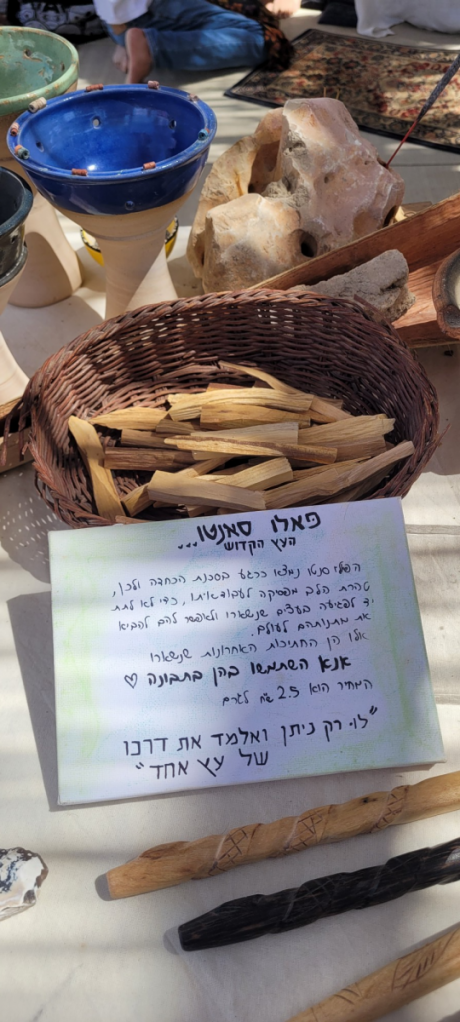 פאלו סאנטו
העץ הקדוש...
הפלו סנטו נמצא כרגע בסכנת הכחדה ולכן,
טהרת הלב מפסיקה לעבוד איתו, כדי לא לתת
יד לפגיעה בעצים שנשארו ולאפשר להם להביא
את מתנותהם לעולם.
אלו הן החתיכות האחרונות שנשארו
אנא השתמשו בהן בתבונה ♡
המחיר הוא 2.5 ש״ח לגרם
"לוי רק ניתן ואלמד את דרכו
של עץ אחד"